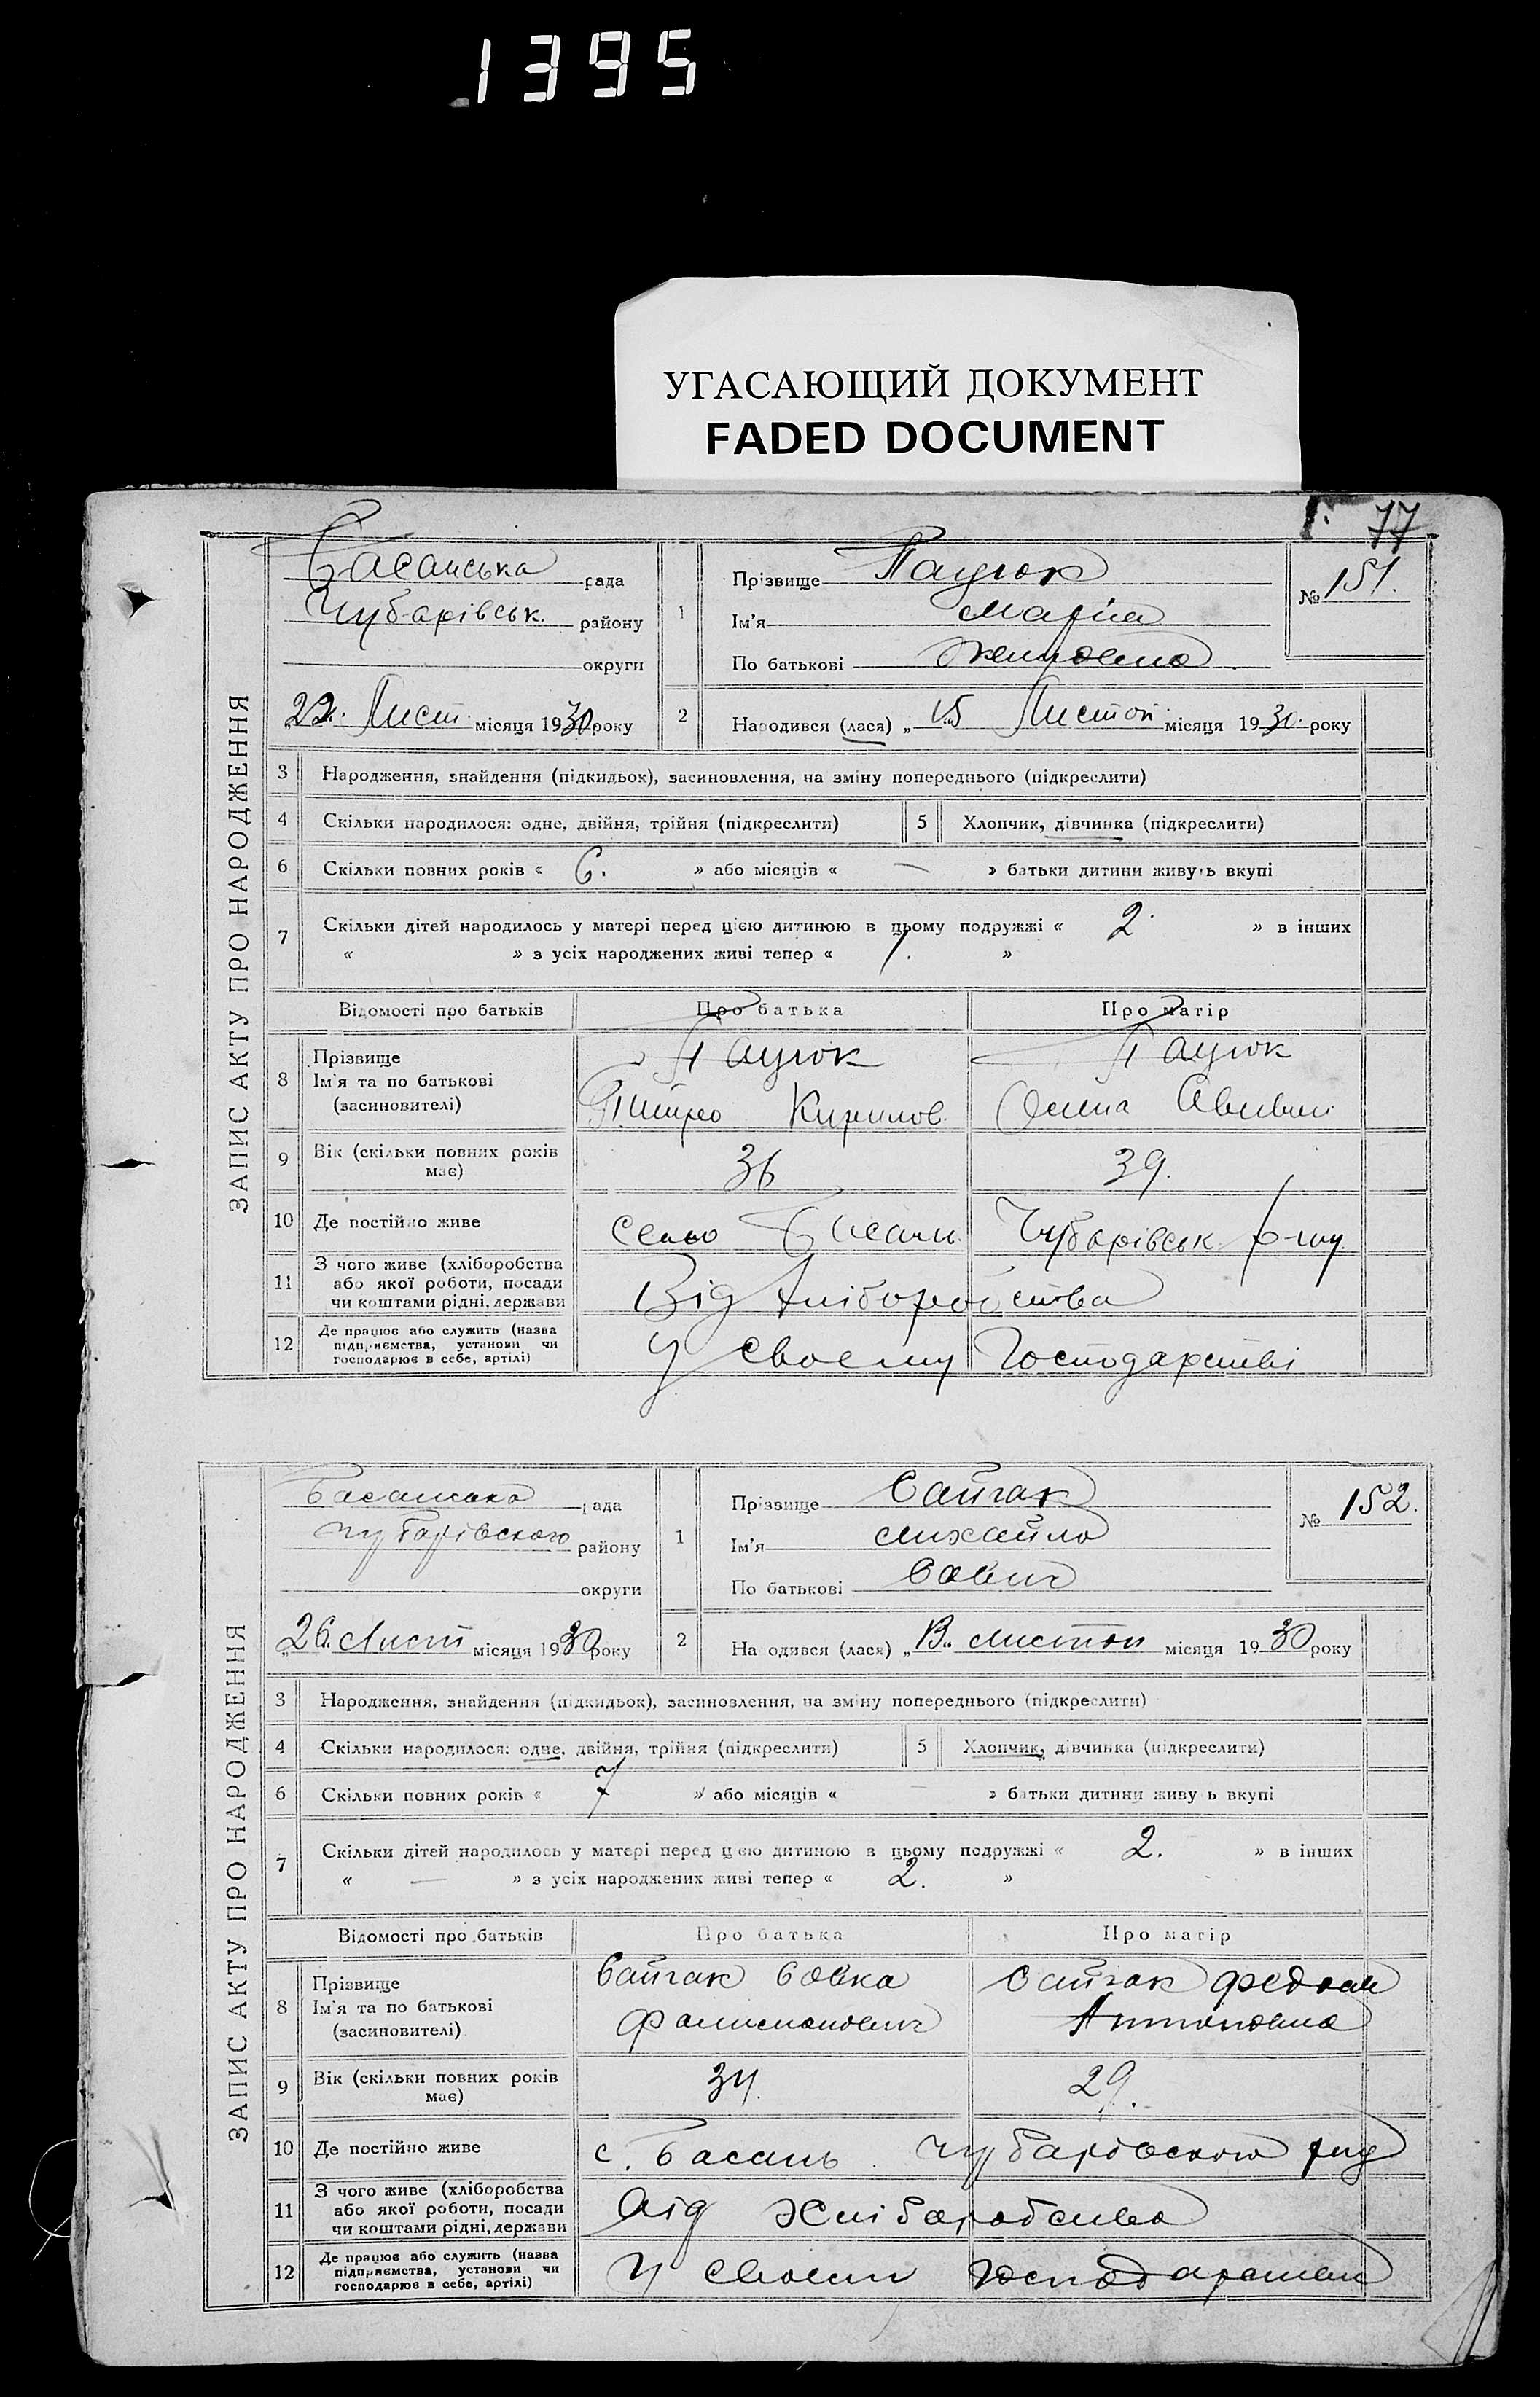 1395
УГАСАЮЩИЙ ДОКУМЕНТ
FADED DOCUMENT
77
ЗАПИС АКТУ ПРО НАРОДЖЕННЯ
Басанська рада
Чубарівськ. району
округи
22. Лист. місяця 1930 року
1
Прізвище Пацюк
Ім'я Марія
По батькові
№ 151.
2
Народився (лася) „15 Листоп. місяця 1930. року
3 Народження, знайдення (підкидьок), засиновлення, на зміну попереднього (підкреслити)
4 Скільки народилося: одне, двійня, трійня (підкреслити)
5 Хлопчик, дівчинка (підкреслити)
6 Скільки повних років « 6. » або місяців « — » батьки дитини живуть вкупі
7 Скільки дітей народилось у матері перед цією дитиною в цьому подружжі « 2. » в інших
« » з усіх народжених живі тепер « 1. »
Відомості про батьків Про батька Про матір
8 Прізвище
Ім'я та по батькові
(засиновителі)
Пацюк
Кирилов.
Пацюк
9 Вік (скільки повних років
має)
36
39.
10 Де постійно живе
село Басань Чубарівськ р-ну
11 З чого живе (хліборобства
або якої роботи, посади
чи коштами рідні, держави
Від хліборобства
12 Де працює або служить (назва
підприємства, установи чи
господарює в себе, артілі)
У своєму Господарстві
ЗАПИС АКТУ ПРО НАРОДЖЕННЯ
Басанська рада
Чубарівського району
округи
„26. Лист місяця 1930 року
1
Прізвище Сайгак
Ім'я Михайло
По батькові Савич
№ 152.
2
Народився (лася) „13.. листоп місяця 1930 року
3 Народження, знайдення (підкидьок), засиновлення, на зміну попереднього (підкреслити)
4 Скільки народилося: одне, двійня, трійня (підкреслити)
5 Хлопчик, дівчинка (підкреслити)
6 Скільки повних років « 7 » або місяців « — » батьки дитини живуть вкупі
7 Скільки дітей народилось у матері перед цією дитиною в цьому подружжі « 2. » в інших
« — » з усіх народжених живі тепер « 2. »
Відомості про батьків Про батька Про матір
8 Прізвище
Ім'я та по батькові
(засиновителі)
Сайгак Савка
Сайгак
Антоновна
9 Вік (скільки повних років
має)
34.
29.
10 Де постійно живе
с. Басань Чубарівського р-ну
11 З чого живе (хліборобства
або якої роботи, посади
чи коштами рідні, держави
Від Хліборобства
12 Де працює або служить (назва
підприємства, установи чи
господарює в себе, артілі)
У своєму господарстві